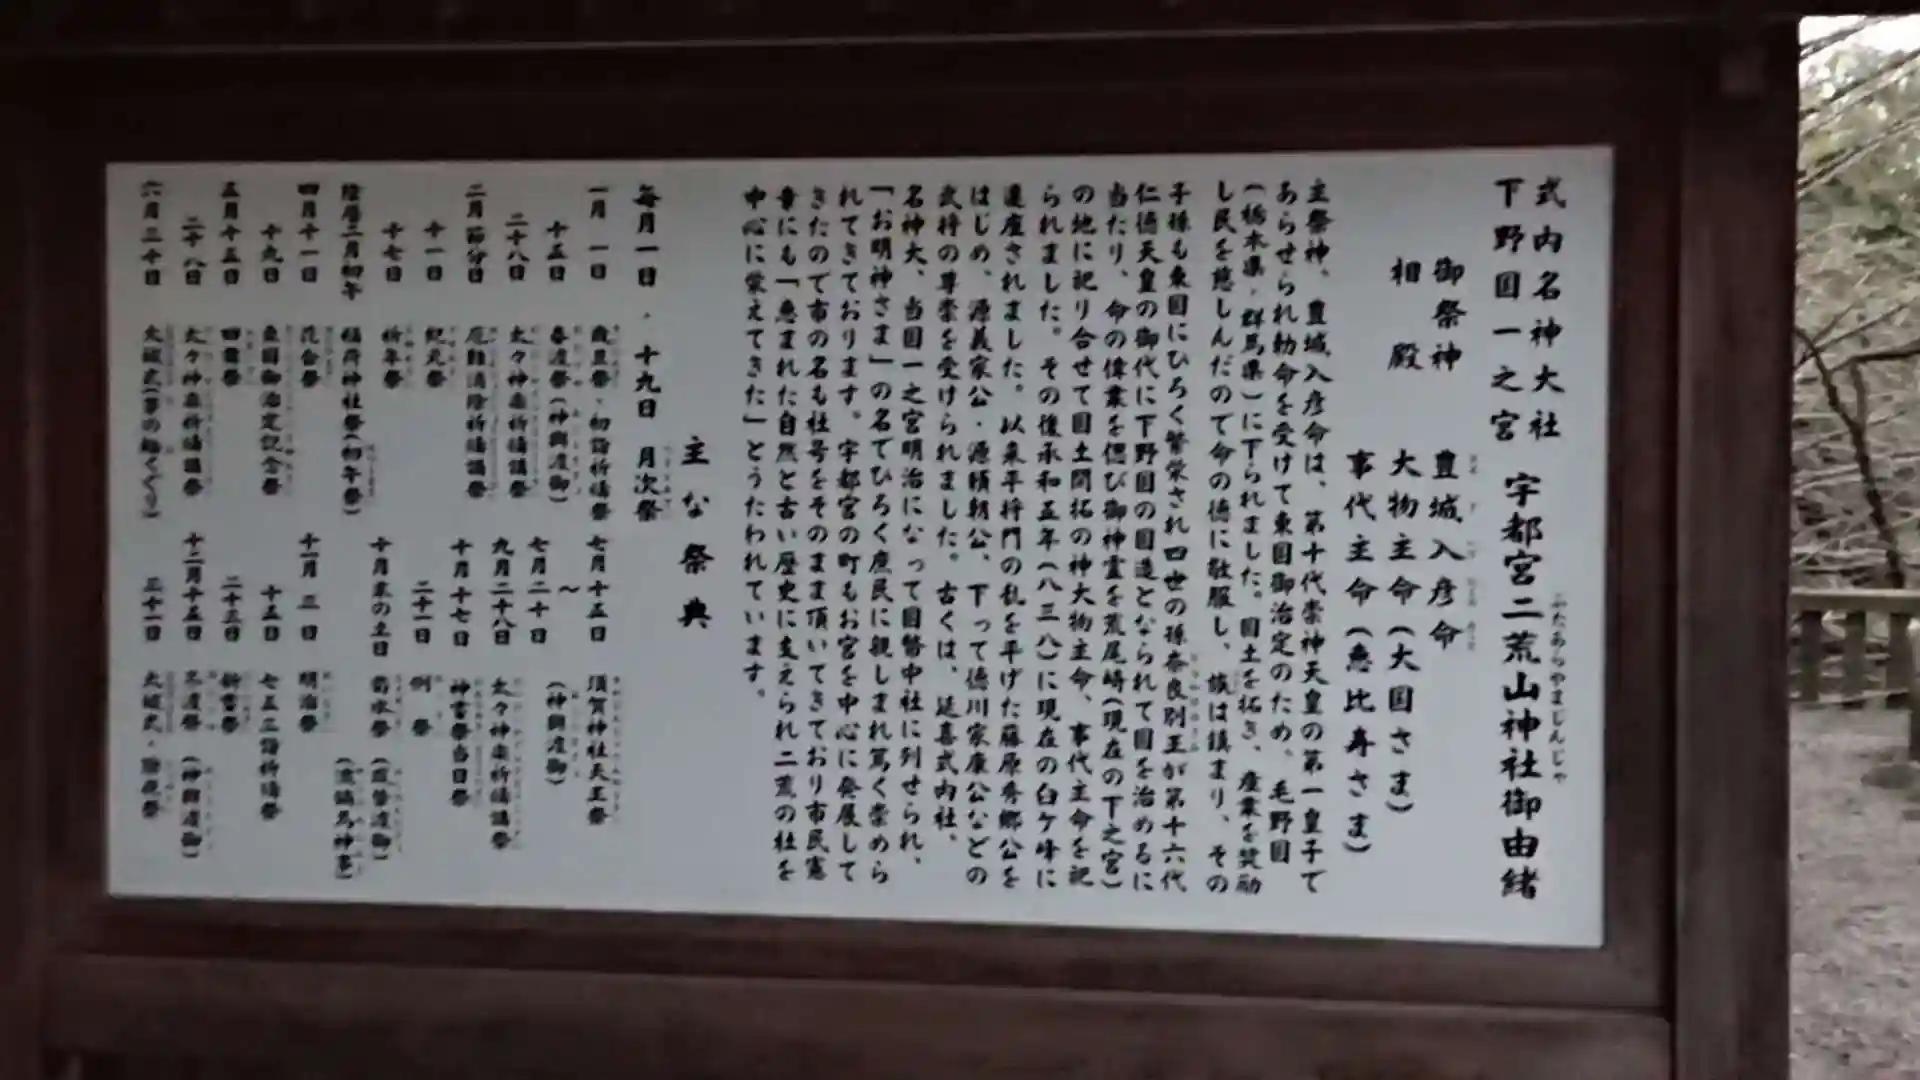 式内名神大社
下野国一之宮
宇都宮二荒山神社御由緒
ふたあらやまじんじゃ
御祭神 豊城入彦命
相殿 大物主命(大国さま)
事代主命(恵比寿さま)
主祭神、豊城入彦命は、第十代崇神天皇の第一皇子で
あらせられ勅命を受けて東国御治定のため、毛野国
(栃木県・群馬県)に下られました。国土を拓き、産業を奨励
し民を慈しんだので命の徳に敬服し、族は鎮まり、その
子孫も東国にひろく繁栄され四世の孫奈良別王が第十六代
仁徳天皇の御代に下野国の国造となられて国を治めるに
当たり、命の偉業を偲び御神霊を荒尾崎(現在の下之宮)
の地に祀り合せて国土開拓の神大物主命、事代主命を祀
られました。その後承和五年(八三八)に現在の臼ケ峰に
遷座されました。以来平将門の乱を平げた藤原秀郷公を
はじめ、源義家公・源頼朝公、下って徳川家康公などの
武将の尊崇を受けられました。古くは、延喜式内社、
名神大、当国一之宮明治になって国幣中社に列せられ、
「お明神さま」の名でひろく庶民に親しまれ篤く崇めら
れてきております。宇都宮の町もお宮を中心に発展して
きたので市の名も社号をそのまま頂いてきており市民憲
章にも「恵まれた自然と古い歴史に支えられ二荒の杜を
中心に栄えてきた」とうたわれています。
主な祭典
毎月一日・十九日 月次祭
一月 一日 歳旦祭・初詣祈祷祭
十五日 春渡祭(神輿渡御)
二十八日 太々神楽祈祷講祭
二月節分日 厄難消除祈祷講祭
十一日 紀元祭
十七日 祈年祭
陰暦二月初午 稲荷神社祭(初午祭)
四月十一日 花会祭
十九日 東国御治定記念祭
五月十五日 田舞祭
二十八日 太々神楽祈祷講祭
六月三十日 大祓式(茅の輪くぐり)
七月十五日 須賀神社天王祭
〜
七月二十日 (神輿渡御)
九月二十八日 太々神楽祈祷講祭
十月十七日 神嘗祭当日祭
二十一日 例祭
十月末の土日 菊水祭(鳳輦渡御)
(流鏑馬神事)
十一月三日 明治祭
十五日 七五三詣祈祷祭
二十三日 新嘗祭
十二月十五日 冬渡祭(神輿渡御)
三十一日 大祓式・除夜祭